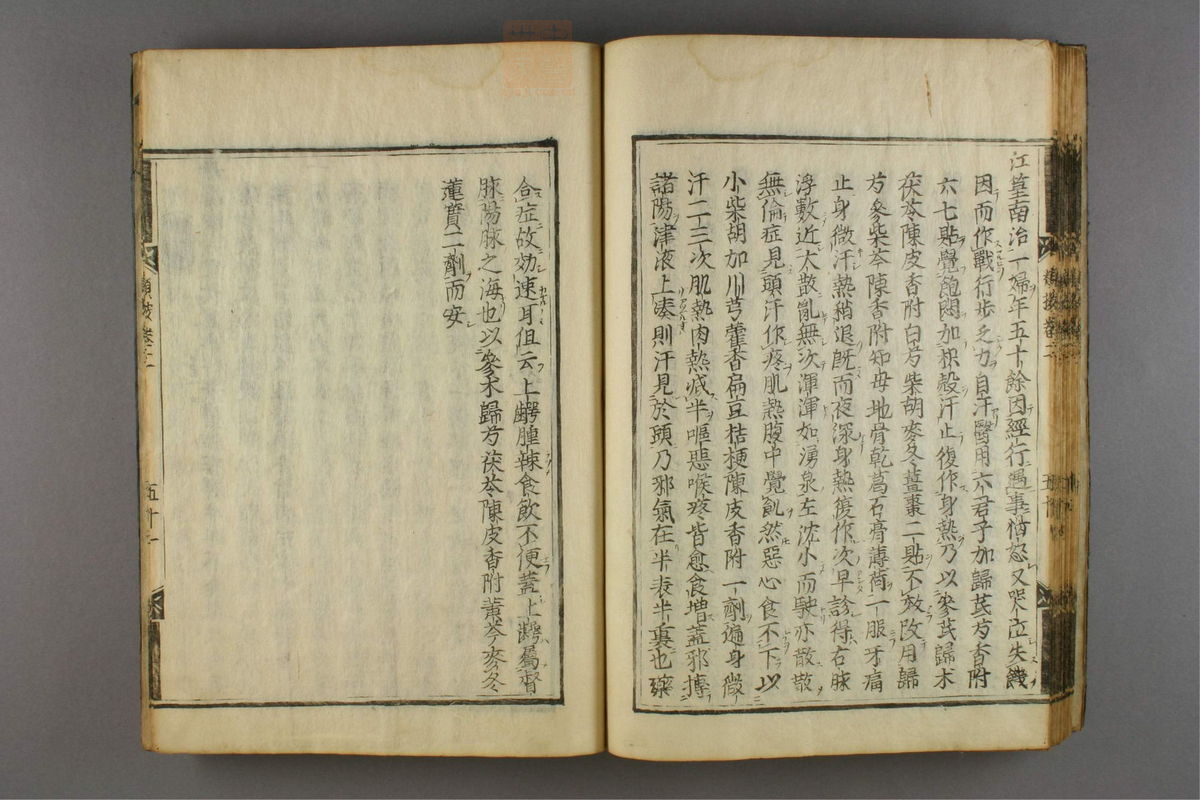 江篁南治一婦年五十餘因經行遇事惱怒又哭泣失饑
因而作戰行步乏力自汗醫用六君子加歸芪芍香附
六七貼覺飽悶加枳殼汗止復作身熱乃以參芪歸朮
茯苓陳皮香附白芍柴胡麥冬薑棗二貼不效改用歸
芍參柴苓陳香附知母地骨乾葛石膏薄荷一服牙痛
止身微汗熱稍退既而夜深身熱復作次早診得右脉
浮數近大散亂無次渾渾如湧泉左沈小而駛亦散散
無倫症見頭汗作疼肌熱腹中覺飢然惡心食不下以
小柴胡加川芎藿香扁豆桔梗陳皮香附一劑遍身微
汗二三次肌熱肉熱减半嘔惡喉疼皆愈食增蓋邪摶
諸陽津液上湊則汗見於頭乃邪氣在半表半裏也藥
類按卷二
五十
合症故効速耳但云上齶腫辣食飲不便蓋上齶屬督
脉陽脉之海也以參朮歸芍茯苓陳皮香附黃芩麥冬
蓮實二劑而安
類按卷二
五十一